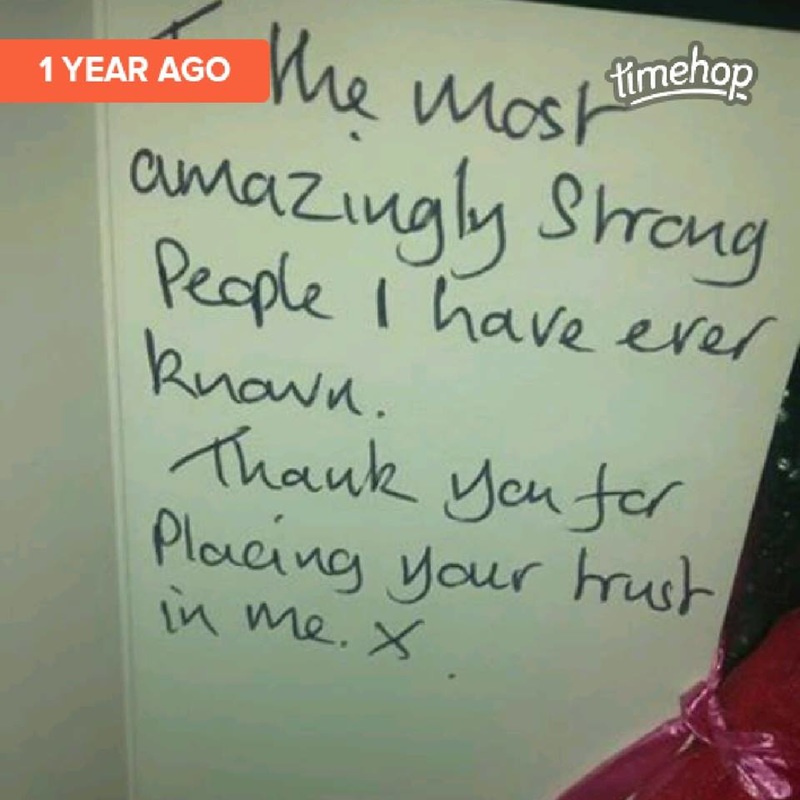 1 YEAR AGO
timehop
the most
amazingly strong
People I have ever
known.
Thank you for
Placing your trust
in me. x